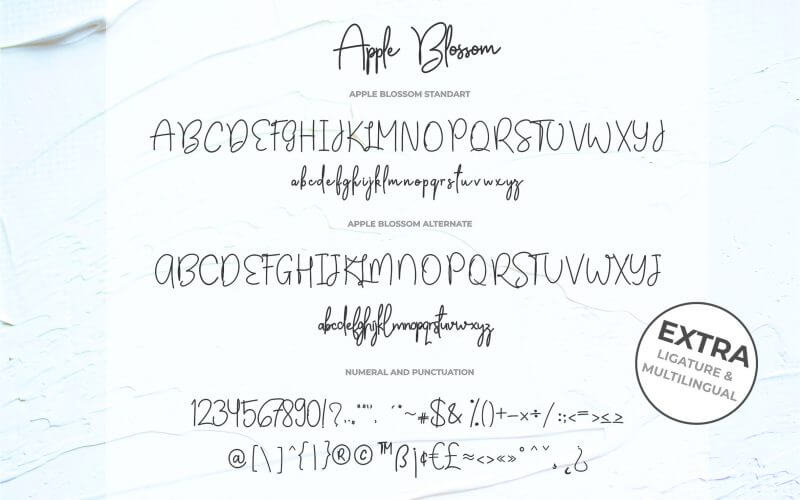 Apple Blossom
APPLE BLOSSOM STANDART
ABCDEFGHIJKLMNOPQRSTUVWXYZ
abcdefghijklmnopqrstuvwxyz
APPLE BLOSSOM ALTERNATE
ABCDEFGHIJKLMNOPQRSTUVWXYZ
abcdefghijklmnopqrstuvwxyz
EXTRA
LIGATURE &
MULTILINGUAL
NUMERAL AND PUNCTUATION
1234567890!?..,"“”‘, ´¨~#$& %()+−×÷/:;<=>≤≥
@[\]^{|}®©™ß¡¢€£≈<>«»°^ˇ ¸˛¿